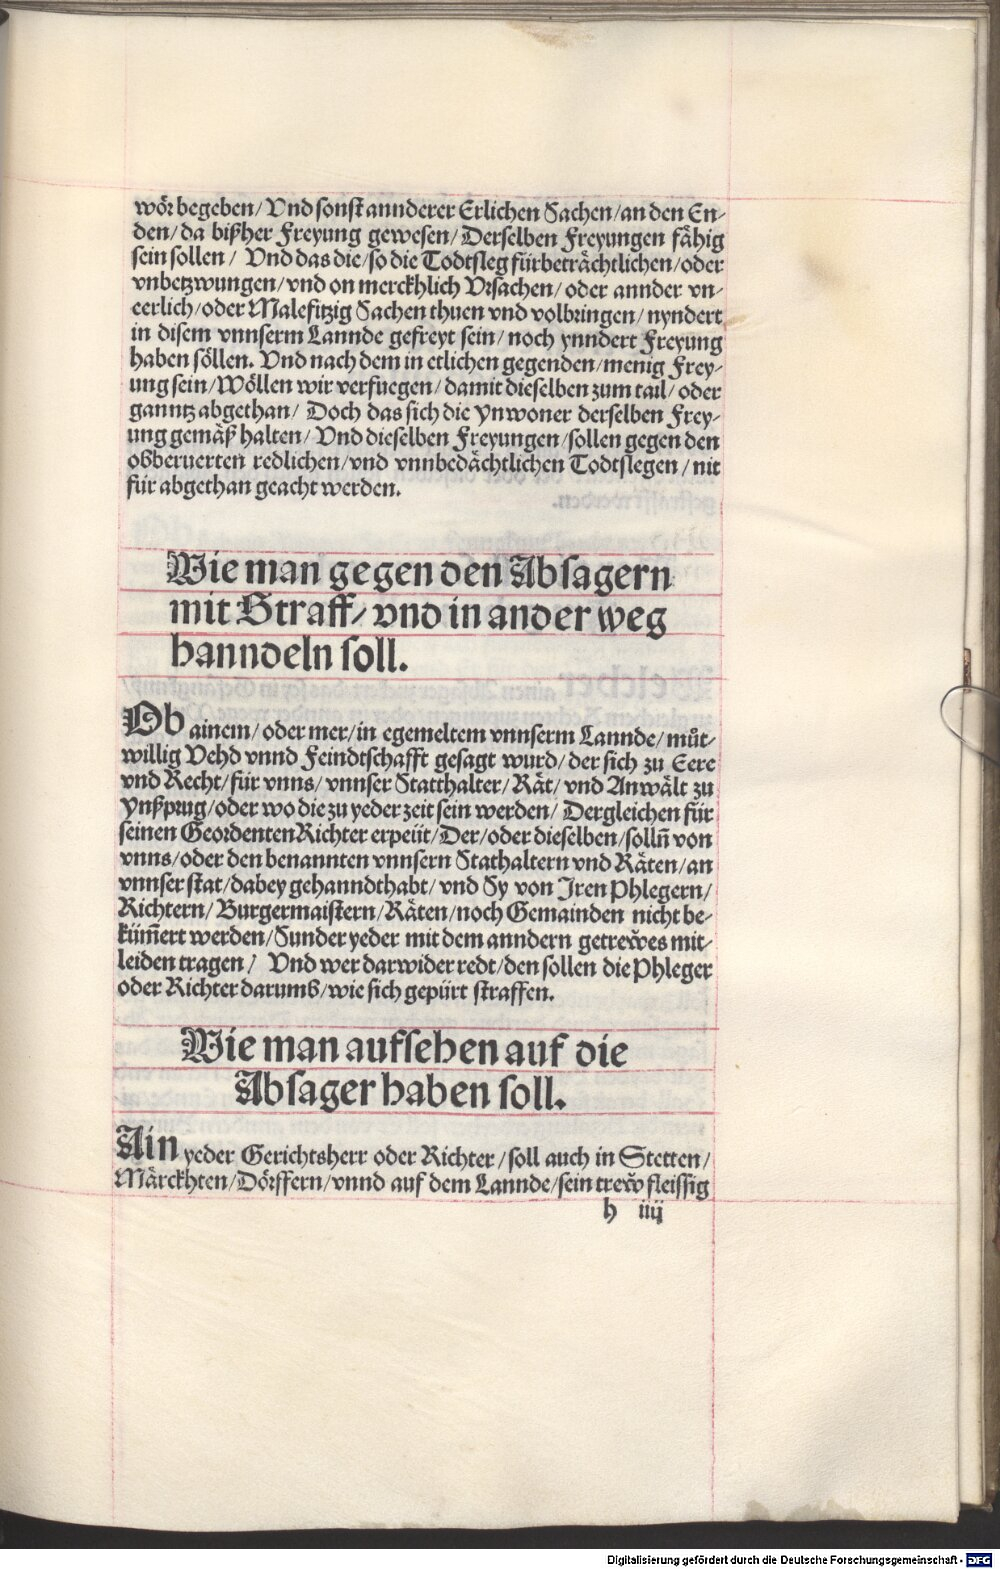 wör begeben/ Vnd sonst annderer Erlichen Sachen/ an den En⸗
den/ da bißher Freyung gewesen/ Derselben Freyungen fähig
sein sollen/ Vnd das die/ so die Todtsleg fürbeträchtlichen/ oder
vnbetzwungen/ vnd on merckhlich Vrsachen/ oder annder vn⸗
eerlich/ oder Malefitzig Sachen thuen vnd volbringen/ nyndert
in disem vnnserm Lannde gefreyt sein/ noch ynndert Freyung
haben söllen. Vnd nach dem in etlichen gegenden/ menig Frey⸗
ung sein/ Wöllen wir verfuegen/ damit dieselben zum tail/ oder
ganntz abgethan/ Doch das sich die Ynwoner derselben Frey⸗
ung gemäß halten/ Vnd dieselben Freyungen/ sollen gegen den
obberuerten redlichen/ vnd vnnbedächtlichen Todtslegen/ nit
für abgethan geacht werden.
Wie man gegen den Absagern
mit Straff/ vnd in ander weg
hanndeln soll.
Ob ainem/ oder mer/ in egemeltem vnnserm Lannde/ můt⸗
willig Vehd vnnd Feindtschafft gesagt wurd/ der sich zu Eere
vnd Recht/ für vnns/ vnnser Statthalter/ Rät/ vnd Anwält zu
Ynßprug/ oder wo die zu yeder zeit sein werden/ Dergleichen für
seinen Geordenten Richter erpeüt/ Der/ oder dieselben/ solln̄ von
vnns/ oder den benannten vnnsern Stathaltern vnd Räten/ an
vnnser stat/ dabey gehanndthabt/ vnd Sy von Iren Phlegern/
Richtern/ Burgermaistern/ Räten/ noch Gemainden nicht be⸗
küm̄ert werden/ Sunder yeder mit dem anndern getrew̆es mit⸗
leiden tragen/ Vnd wer darwider redt/ den sollen die Phleger
oder Richter darumb/ wie sich gepürt straffen.
Wie man aufsehen auf die
Absager haben soll.
Ain yeder Gerichtsherr oder Richter/ soll auch in Stetten/
Märckhten/ Dörffern/ vnnd auf dem Lannde/ sein trew̆ fleissig
h iiij
Digitalisierung gefördert durch die Deutsche Forschungsgemeinschaft - DFG